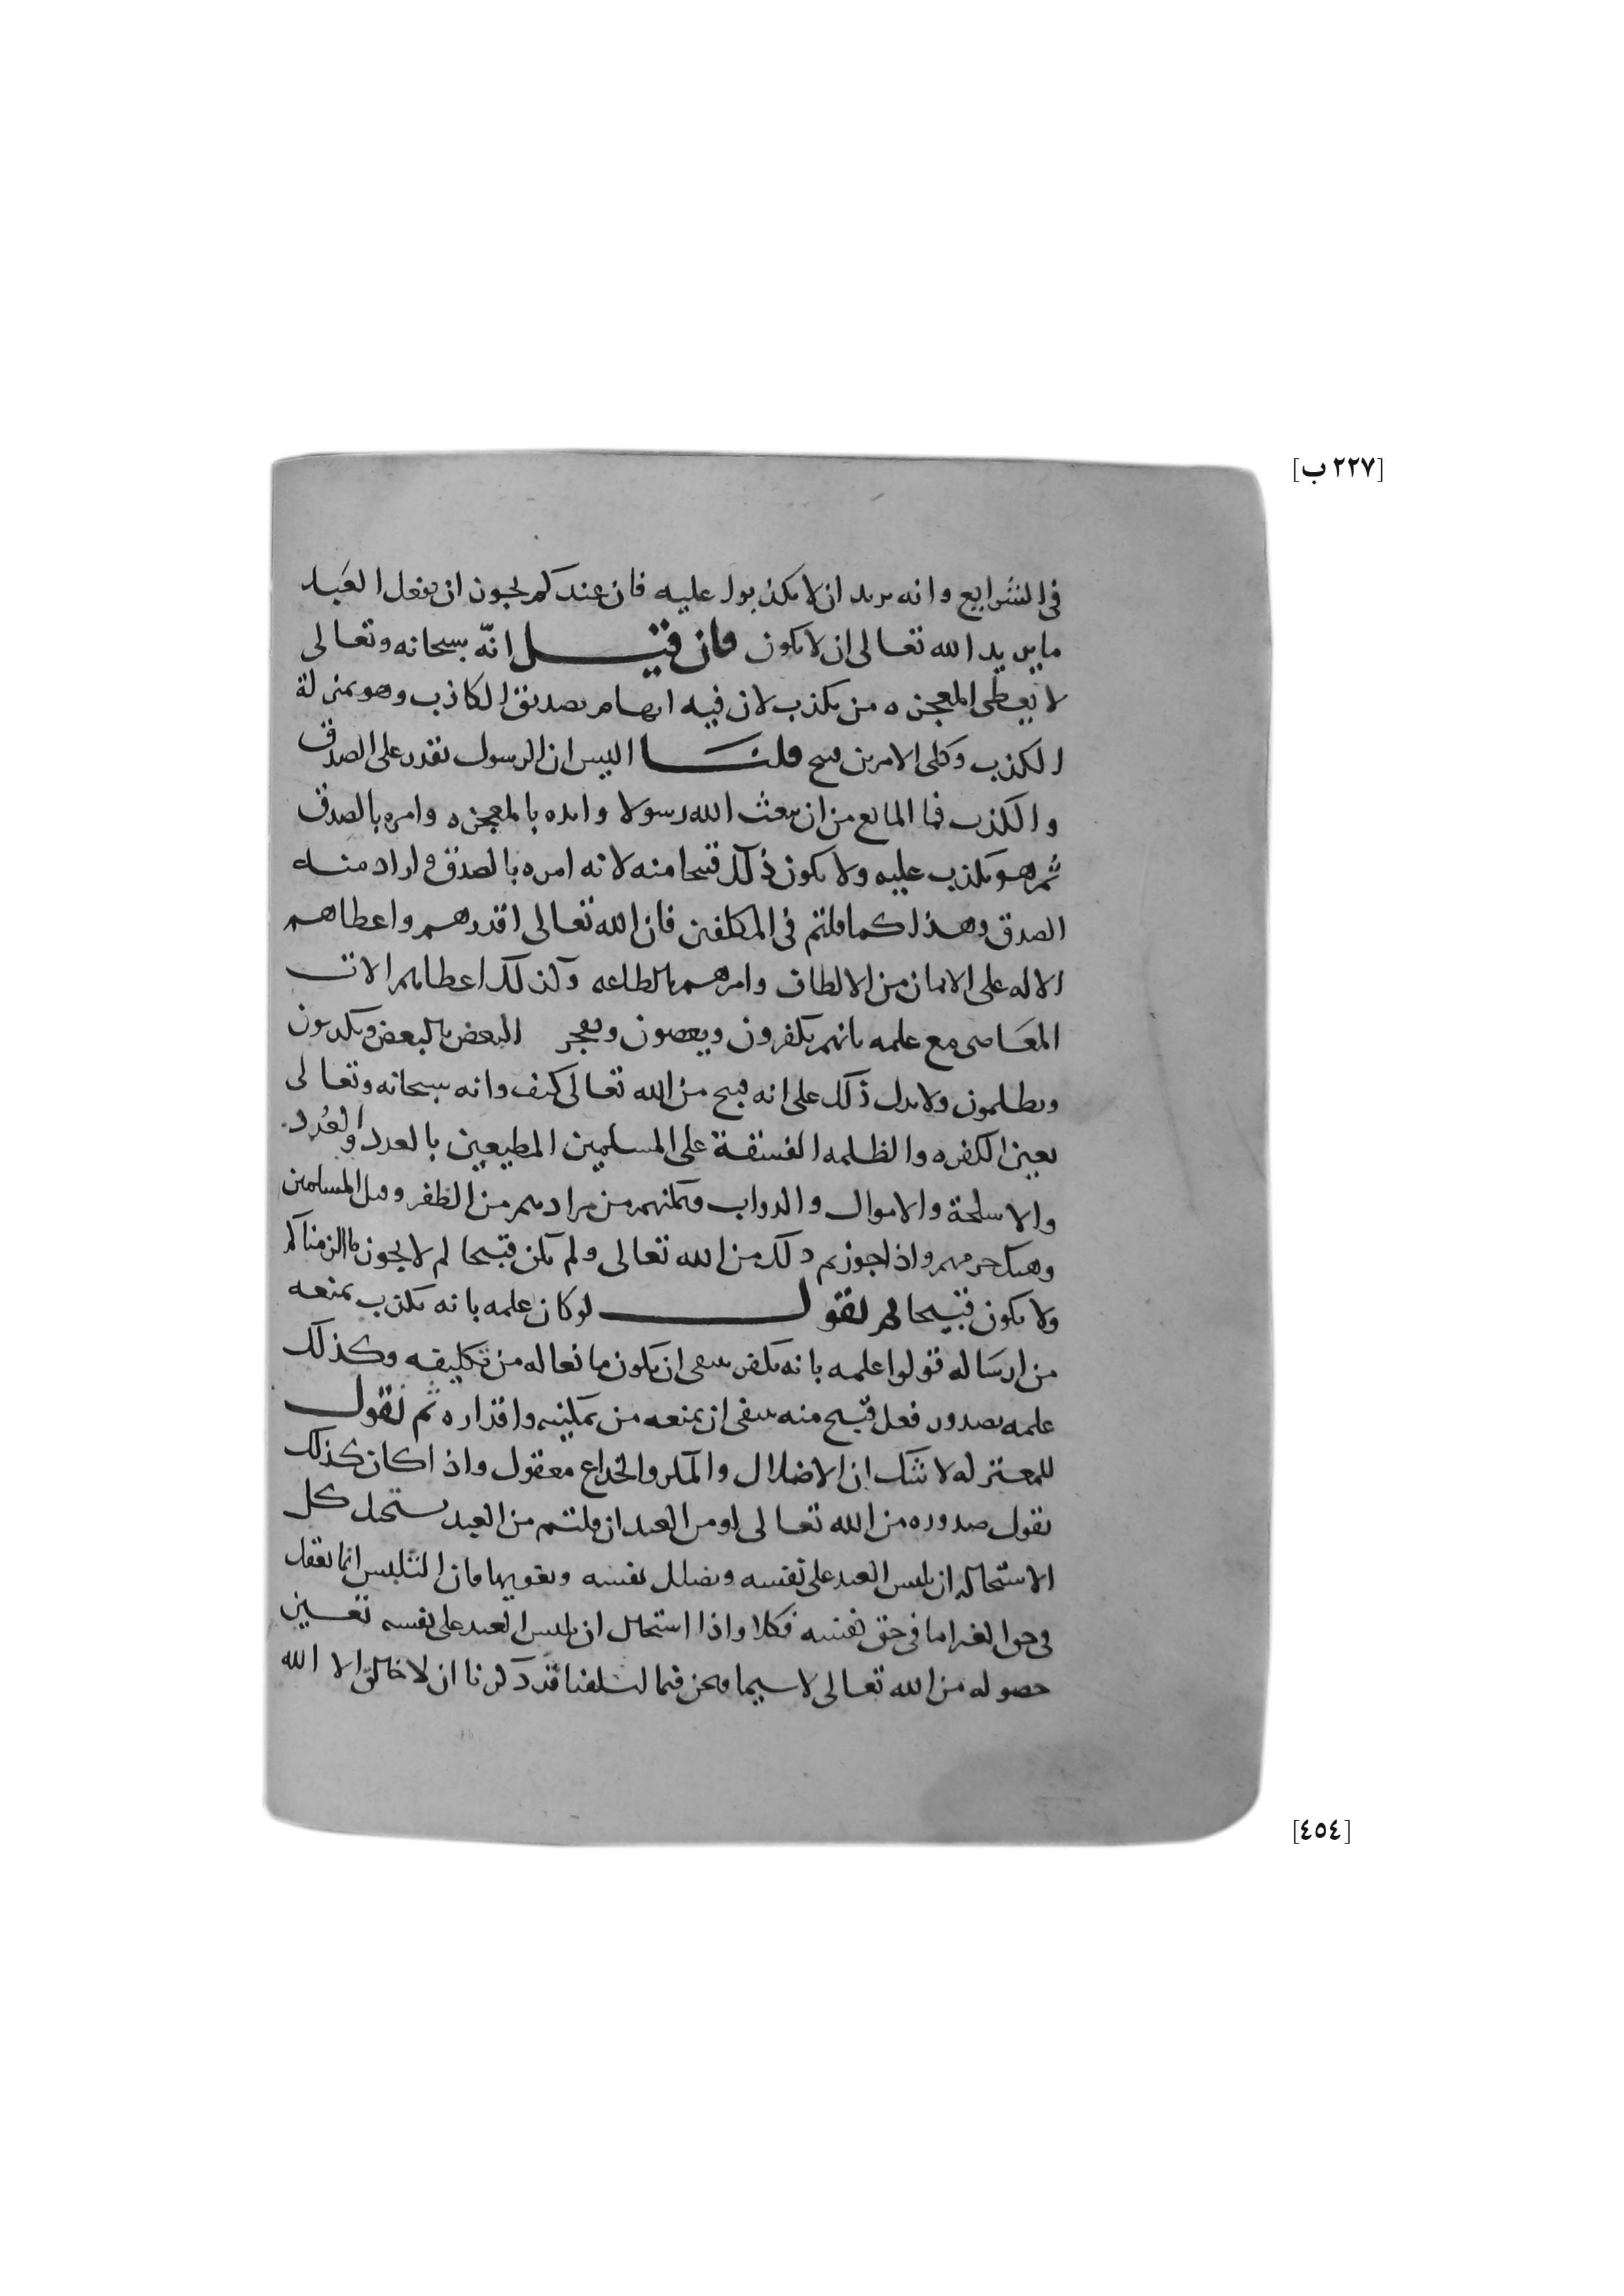 [٢٢٧ ب]
في الشرايع وانه يريد ان لا يكذبوا عليه فان عندكم يجوز ان يفعل العبد
ما يريد الله تعالى ان لا يكون فان قيل انّه سبحانه وتعالى
لا يعطى المعجزه من يكذب لان فيه ايهام تصديق الكاذب وهو بمنزلة
الكذب وكلى الامرين قبيح قلنا اليس ان الرسول يقدر على الصدق
والكذب فما المانع من ان يبعث الله رسولا وايده بالمعجزه وامره بالصدق
ثم هو يكذب عليه ولا يكون ذلك قبيحا منه لانه امره بالصدق واراد منه
الصدق وهذا كما قلتم في المكلفين فان الله تعالى اقدرهم واعطاهم
الاله على الايمان من الالطاف وامرهم بالطاعه وكذلك اعطاهم الات
المعاصى مع علمه بانهم يكفرون ويعصون ويفجر البعض بالبعض ويكذبون
ويظلمون ولا يدل ذلك على انه قبيح من الله تعالى كيف وانه سبحانه وتعالى
يعين الكفره والظلمه الفسقة على المسلمين المطيعين بالعدد والعُدد
والاسلحة والاموال والدواب ويمكنهم من مرادهم من الظفر وقتل المسلمين
وهتك حرمهم واذا جوزتم ذلك من الله تعالى ولم يكن قبيحا لم لا يجوز ما الزمناكم
ولا يكون قبيحا ثم نقول لو كان علمه بانه يكذب يمنعه
من ارساله قولوا علمه بانه يكفر ينبغى ان يكون مانعا له من تكليفه وكذلك
علمه بصدور فعل قبيح منه ينبغى ان يمنعه من تمكينه واقداره ثم نقول
للمعتزله لا شك ان الاضلال والمكر والخداع معقول واذا كان كذلك
نقول صدوره من الله تعالى او من العبد ان قلتم من العبد يستحيل كل
الاستحاله ان يلبس العبد على نفسه ويضلل نفسه ويغويها فان التلبيس انما يعقل
في حق الغير اما في حق نفسه فكلا واذا استحال ان يلبس العبد على نفسه تعين
حصوله من الله تعالى لا سيما ونحن فيما اسلفنا قد ذكرنا ان لا خالق الا الله
[٤٥٤]